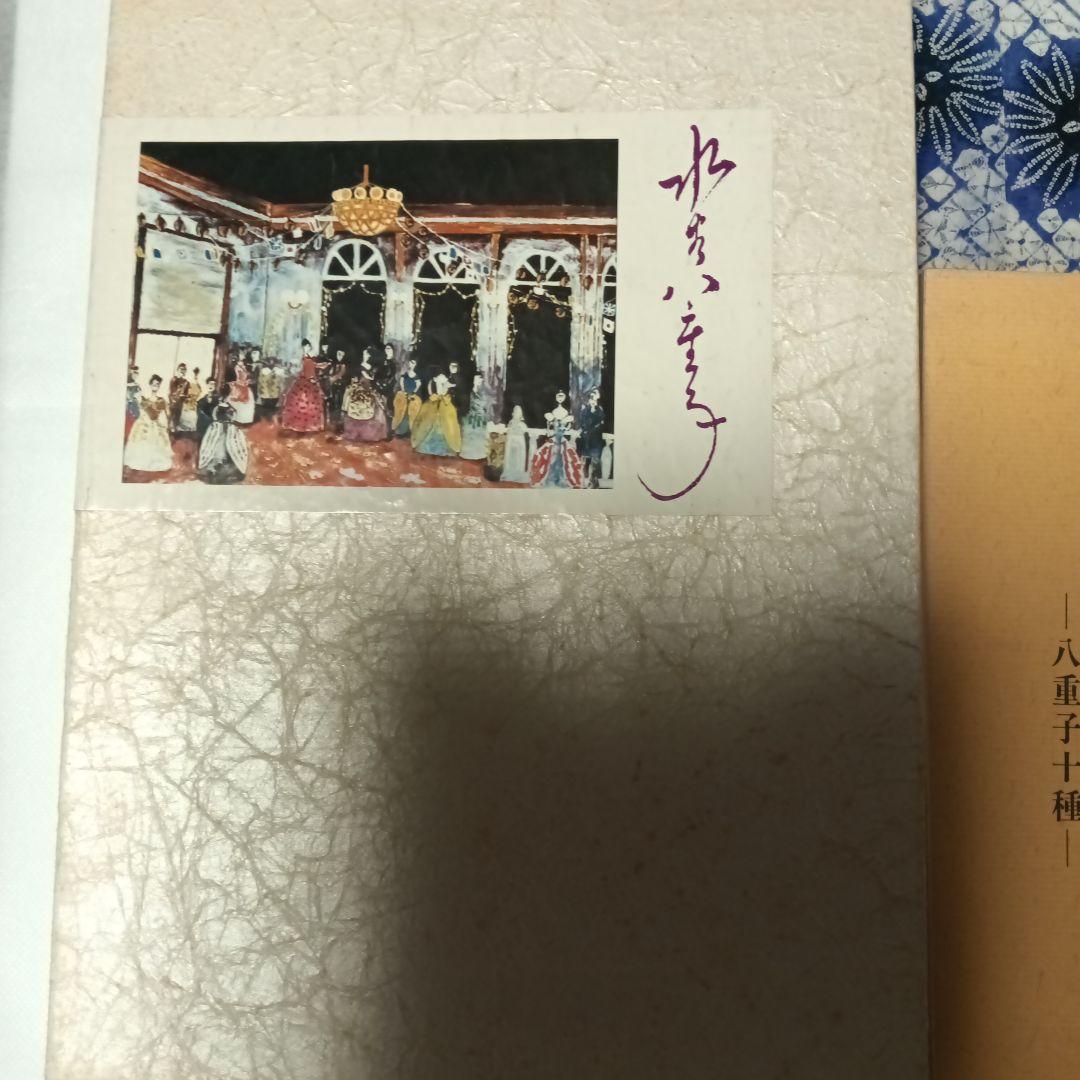 水谷八重子
—八重子十種—